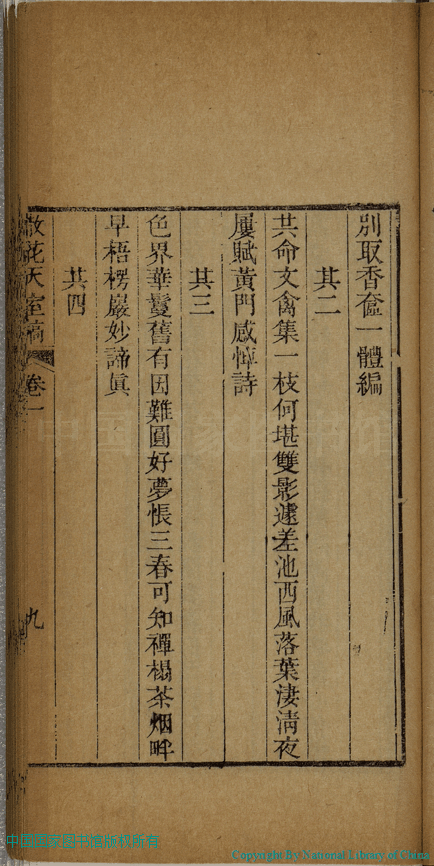 別取香奩一體編
其二
共命文禽集一枝何堪雙影遽差池西風落葉淒清夜
屢賦黃門感悼詩
其三
色界華鬘舊有因難圓好夢悵三春可知禪榻茶烟畔
早梧楞嚴妙諦眞
其四
散花天室稿 卷一 九
Copyright By National Library of China